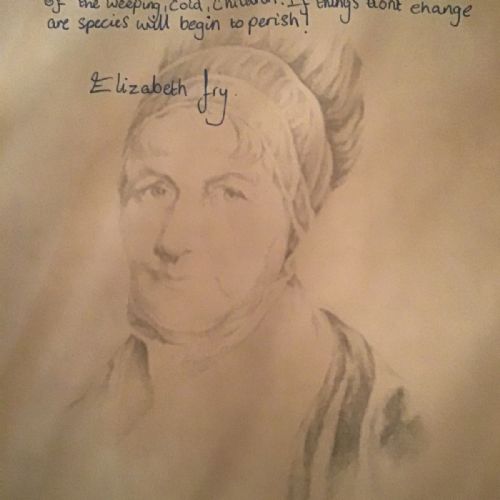 of the weeping, cold, children. If things dont change
are species will begin to perish!
Elizabeth fry.